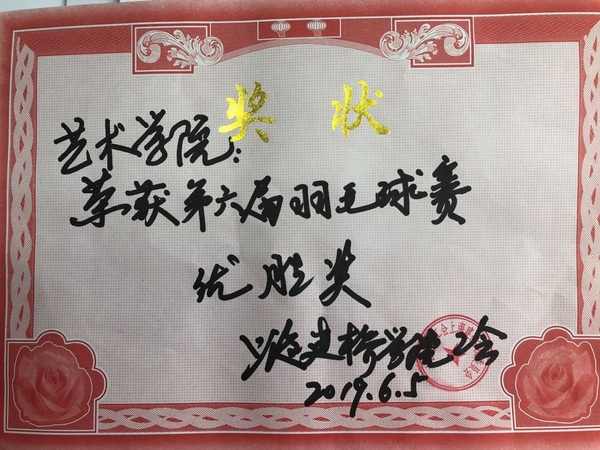 奖 状
艺术学院：
荣获第六届羽毛球赛
优胜奖
上海建桥学院工会
2019.6.5